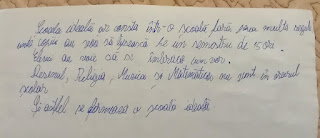 Școala ideală ar consta într-o școală fără prea multe reguli
unde copiii au voie să lipsească de un semestru de 15 ori.
Elevii au voie să se îmbrace cum vor.
Desenul, Religia, Muzica și Matematica nu sunt în orarul
școlar.
Și astfel se formează o școală ideală.